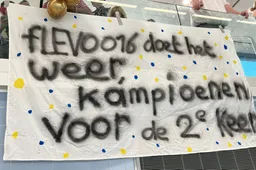 FLEVOO16 doet het
weer,
kampioenen
voor de 2e keer